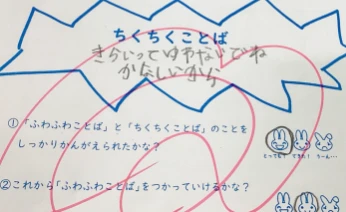 ちくちくことば
きらいってゆわないでね
かなしいから
①「ふわふわことば」と「ちくちくことば」のことを
しっかりかんがえられたかな？
とっても！ できた！ うーん…
②これから「ふわふわことば」をつかっていけるかな？